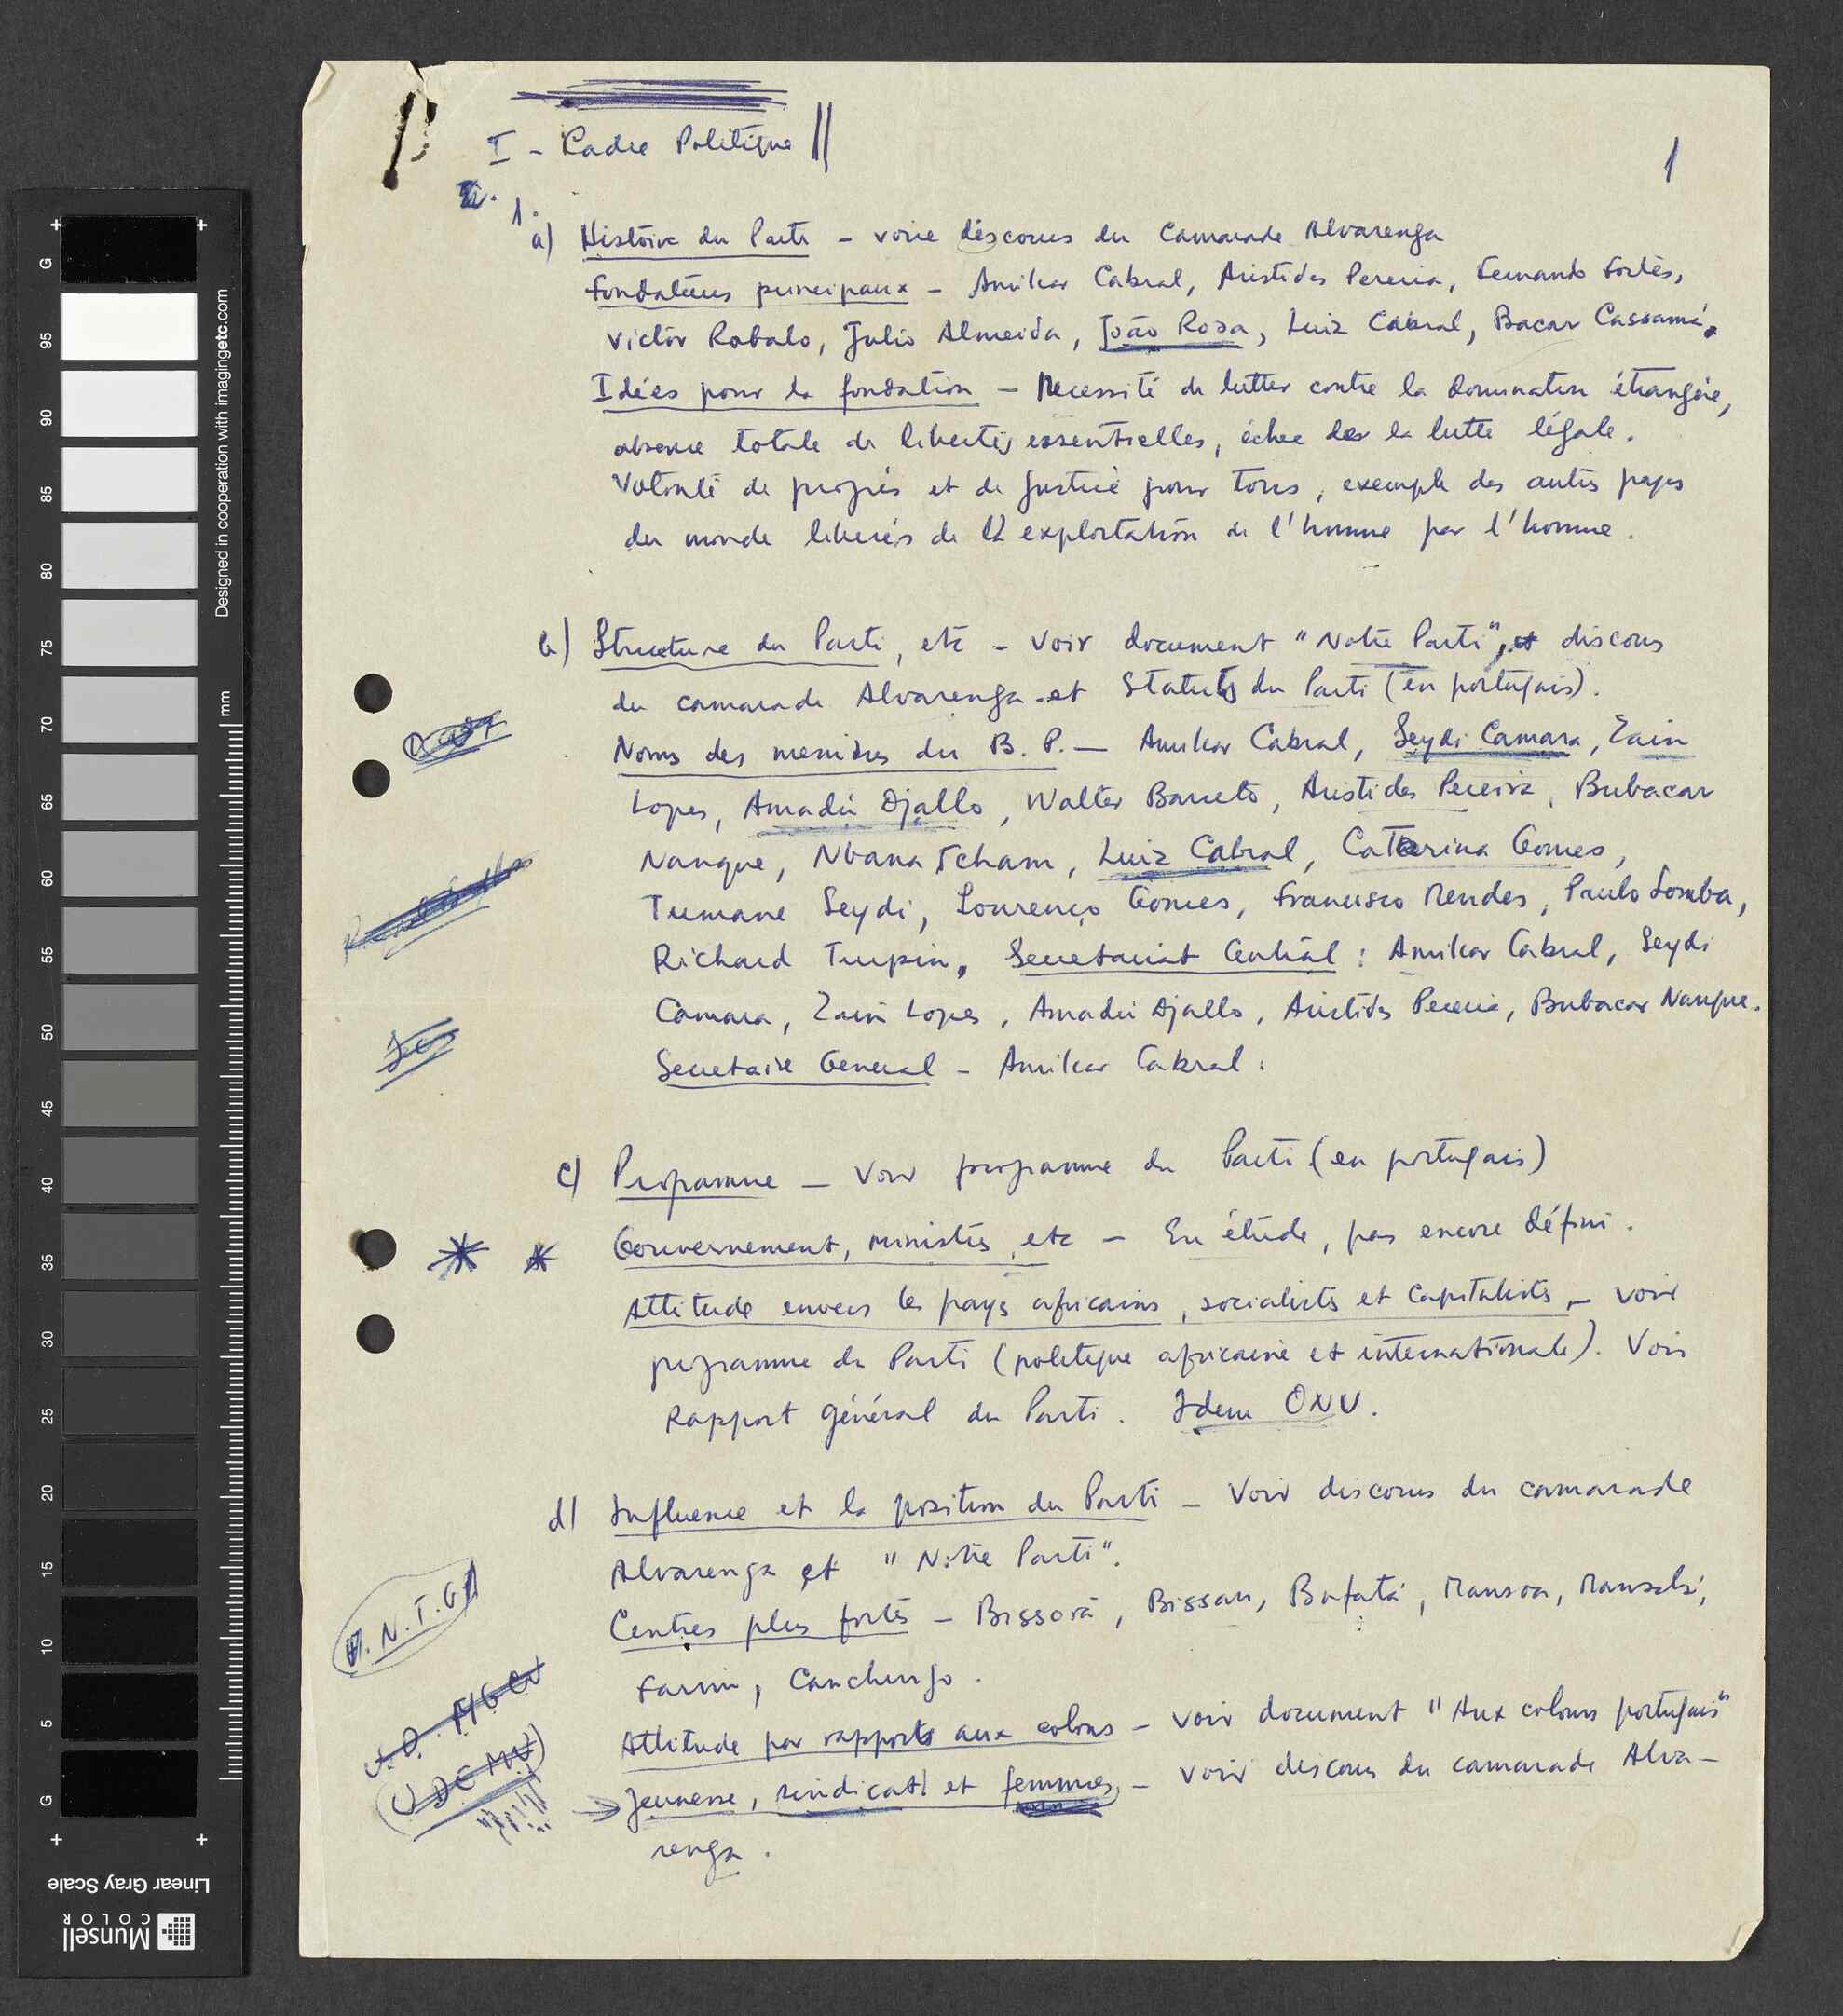 I - Cadre Politique
1
1.
a) Histoire du Parti - voire discours du Camarade Alvarenga
Fondateurs principaux - Amilcar Cabral, Aristides Pereira, Fernando Fortes,
Victor Robalo, Julio Almeida, João Rosa, Luiz Cabral, Bacar Cassamá.
Idées pour la fondation - Necessité de lutter contre la domination étrangère,
absence totale de libertés essentielles, échec de la lutte légale.
Volonté de progrès et de justice pour tous, exemple des autres pays
du monde liberés de l'exploitation de l'homme par l'homme.
b) Structure du Parti, etc - Voir document "Notre Parti", discours
du camarade Alvarenga et Statuts du Parti (en portugais).
Noms des membres du B. P. - Amilcar Cabral, Seydi Camara, Zain
Lopes, Amadú Djallo, Walter Barreto, Aristides Pereira, Bubacar
Nanque, Nbana Tcham, Luiz Cabral, Caterina Gomes,
Tumane Seydi, Lourenço Gomes, Francisco Mendes, Paulo Lomba,
Richard Turpin. Secretariat Central : Amilcar Cabral, Seydi
Camara, Zain Lopes, Amadú Djallo, Aristides Pereira, Bubacar Nanque.
Secretaire General - Amilcar Cabral.
c) Programme - Voir programme du Parti (en portugais)
Gouvernement, ministres, etc - En étude, pas encore défini.
Attitude envers les pays africains, socialistes et capitalistes, - voir
programme du Parti (politique africaine et internationale). Voir
Rapport général du Parti. Idem ONU.
d) Influence et la position du Parti - Voir discours du camarade
Alvarenga et "Notre Parti".
Centres plus fortes - Bissorã, Bissau, Bafatá, Mansoa, Mansabá,
Farim, Canchungo.
Attitude par rapports aux colons - voir document "Aux colons portugais"
Jeunesse, sindicat et femmes, - voir discours du camarade Alva-
renga.
U.N.T.G
(UDEMU)